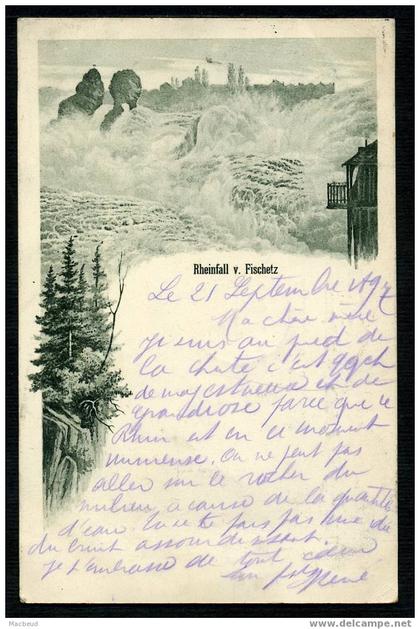 Rheinfall v. Fischetz
Le 21 Septembre 1897
Ma chère mère
je suis au pied de
la chute c'est qqch
de majestueux et de
grandiose parce que le
Rhin est en ce moment
immense. On ne peut pas
aller sur le rocher du
milieu à cause de la quantité
d'eau. Tu te fais pas idée du
du bruit assourdissant.
je t'embrasse de tout cœur
ton fils René
© Macbeud
www.delcampe.net